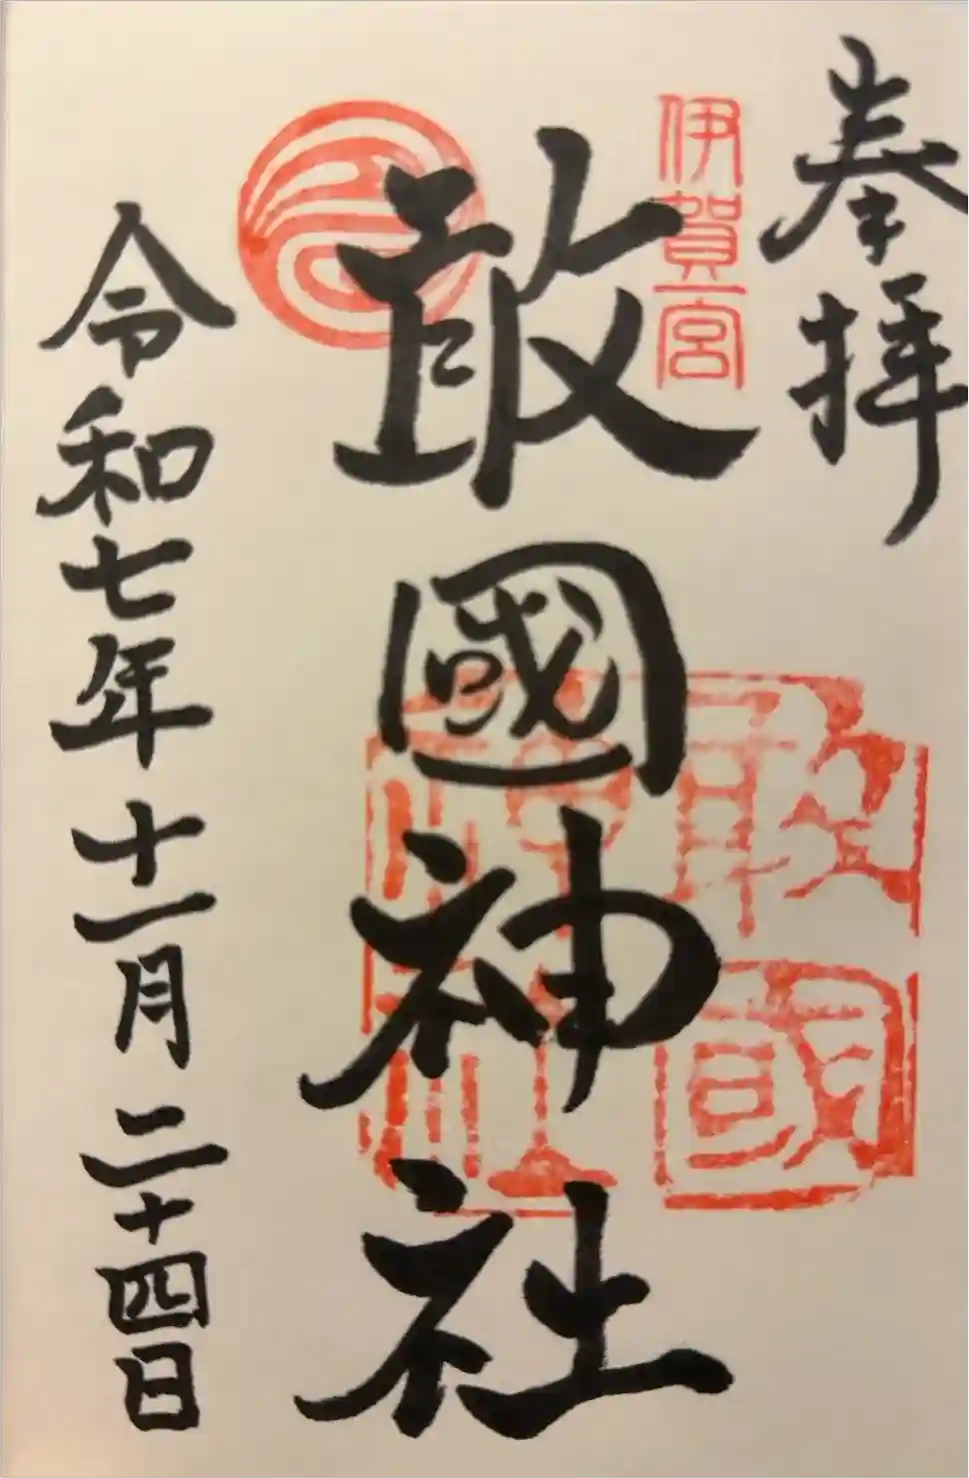 奉拝
伊賀一宮
敢國神社
敢國
神社
令和七年十一月二十四日